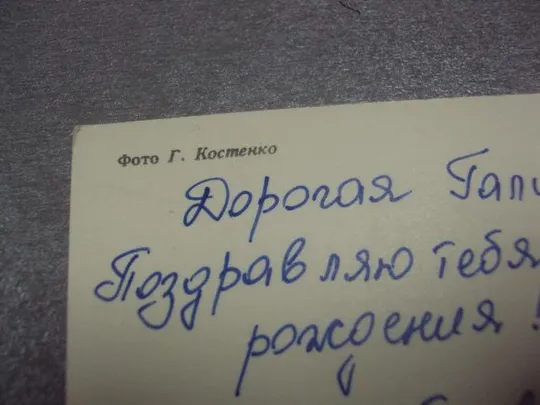 Фото Г. Костенко
Дорогая
Поздравляю тебя
рождения!